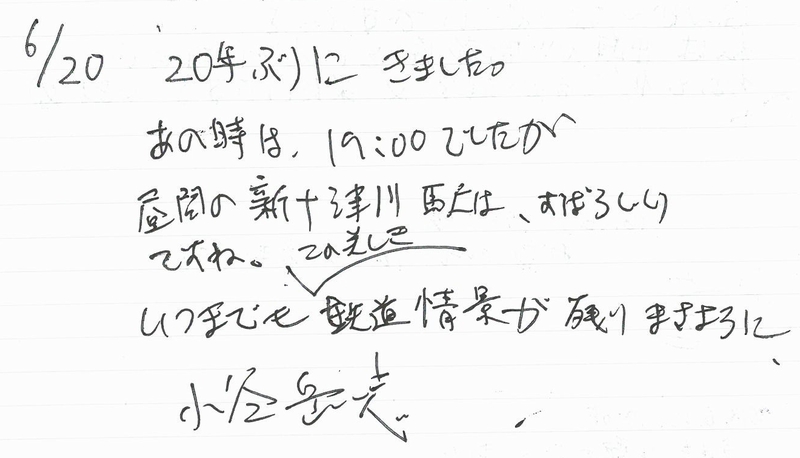 6/20 20年ぶりにきました。
あの時は、19:00でしたが
昼間の新十津川駅は、すばらしい
ですね。この美しき
いつまでも鉄道情景が残りますように
小谷岳志